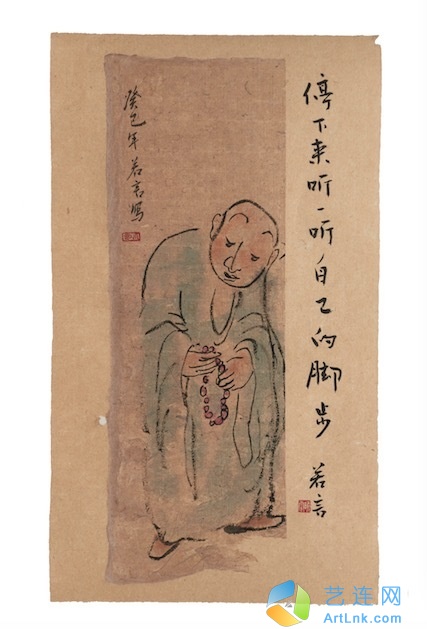 停下来听一听自己的脚步
若言
癸巳年若言写
艺连网
ArtLnk.com